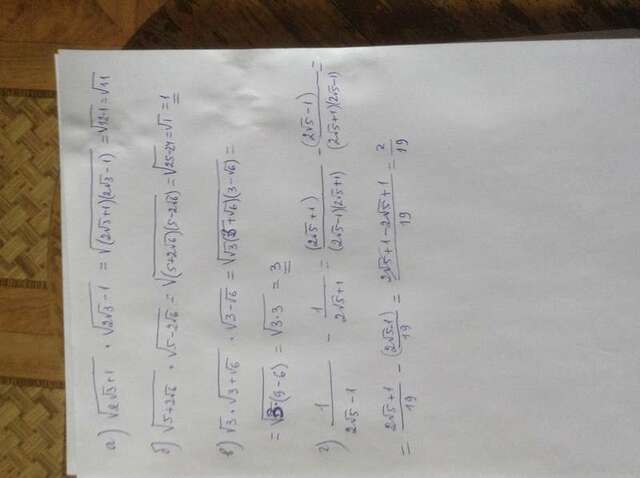 а) √(2√3+1) · √(2√3-1) = √((2√3+1)(2√3-1)) = √(12-1) = √11
б) √(5+2√6) · √(5-2√6) = √((5+2√6)(5-2√6)) = √(25-24) = √1 = 1
в) √3 · √(3+√6) · √(3-√6) = √(√3(3+√6)(3-√6)) =
= √(3·(9-6)) = √(3·3) = 3
г) 1/(2√5-1) - 1/(2√5+1) = (2√5+1)/((2√5-1)(2√5+1)) - (2√5-1)/((2√5+1)(2√5-1)) =
= (2√5+1)/19 - (2√5-1)/19 = (2√5+1-2√5+1)/19 = 2/19